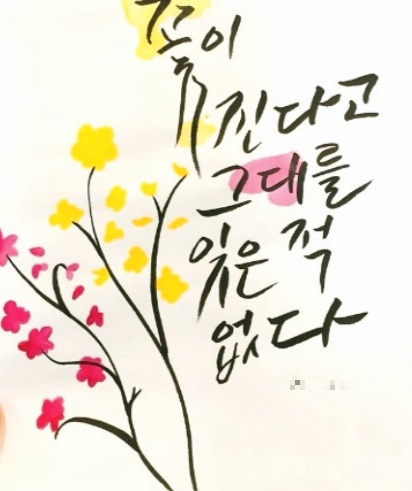 꽃이
진다고
그대를
잊은 적
없다